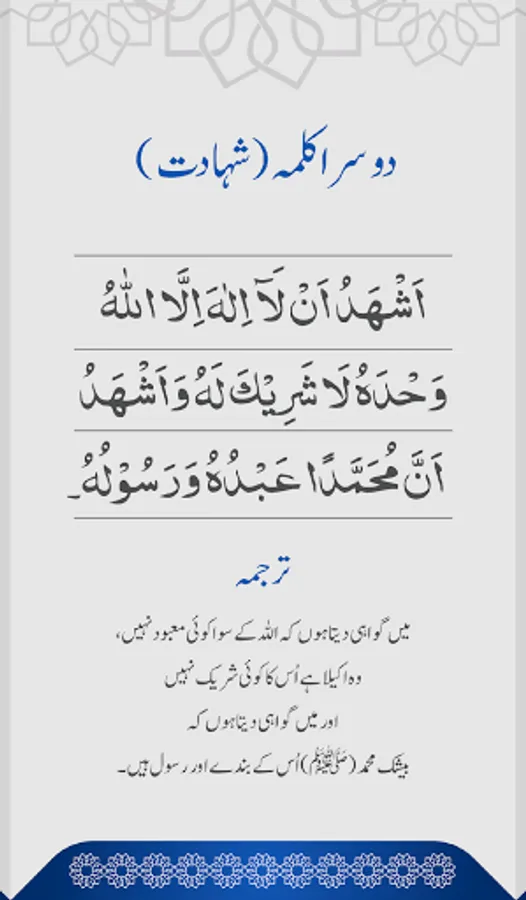 دوسرا کلمہ (شہادت)
اَشْهَدُ اَنْ لَّآ اِلٰهَ اِلَّا اللّٰهُ
وَحْدَهٗ لَا شَرِيْكَ لَهٗ وَاَشْهَدُ
اَنَّ مُحَمَّدًا عَبْدُهٗ وَرَسُوْلُهٗ۔
ترجمہ
میں گواہی دیتا ہوں کہ اللہ کے سوا کوئی معبود نہیں،
وہ اکیلا ہے اُس کا کوئی شریک نہیں
اور میں گواہی دیتا ہوں کہ
بیشک محمد (ﷺ) اُس کے بندے اور رسول ہیں۔